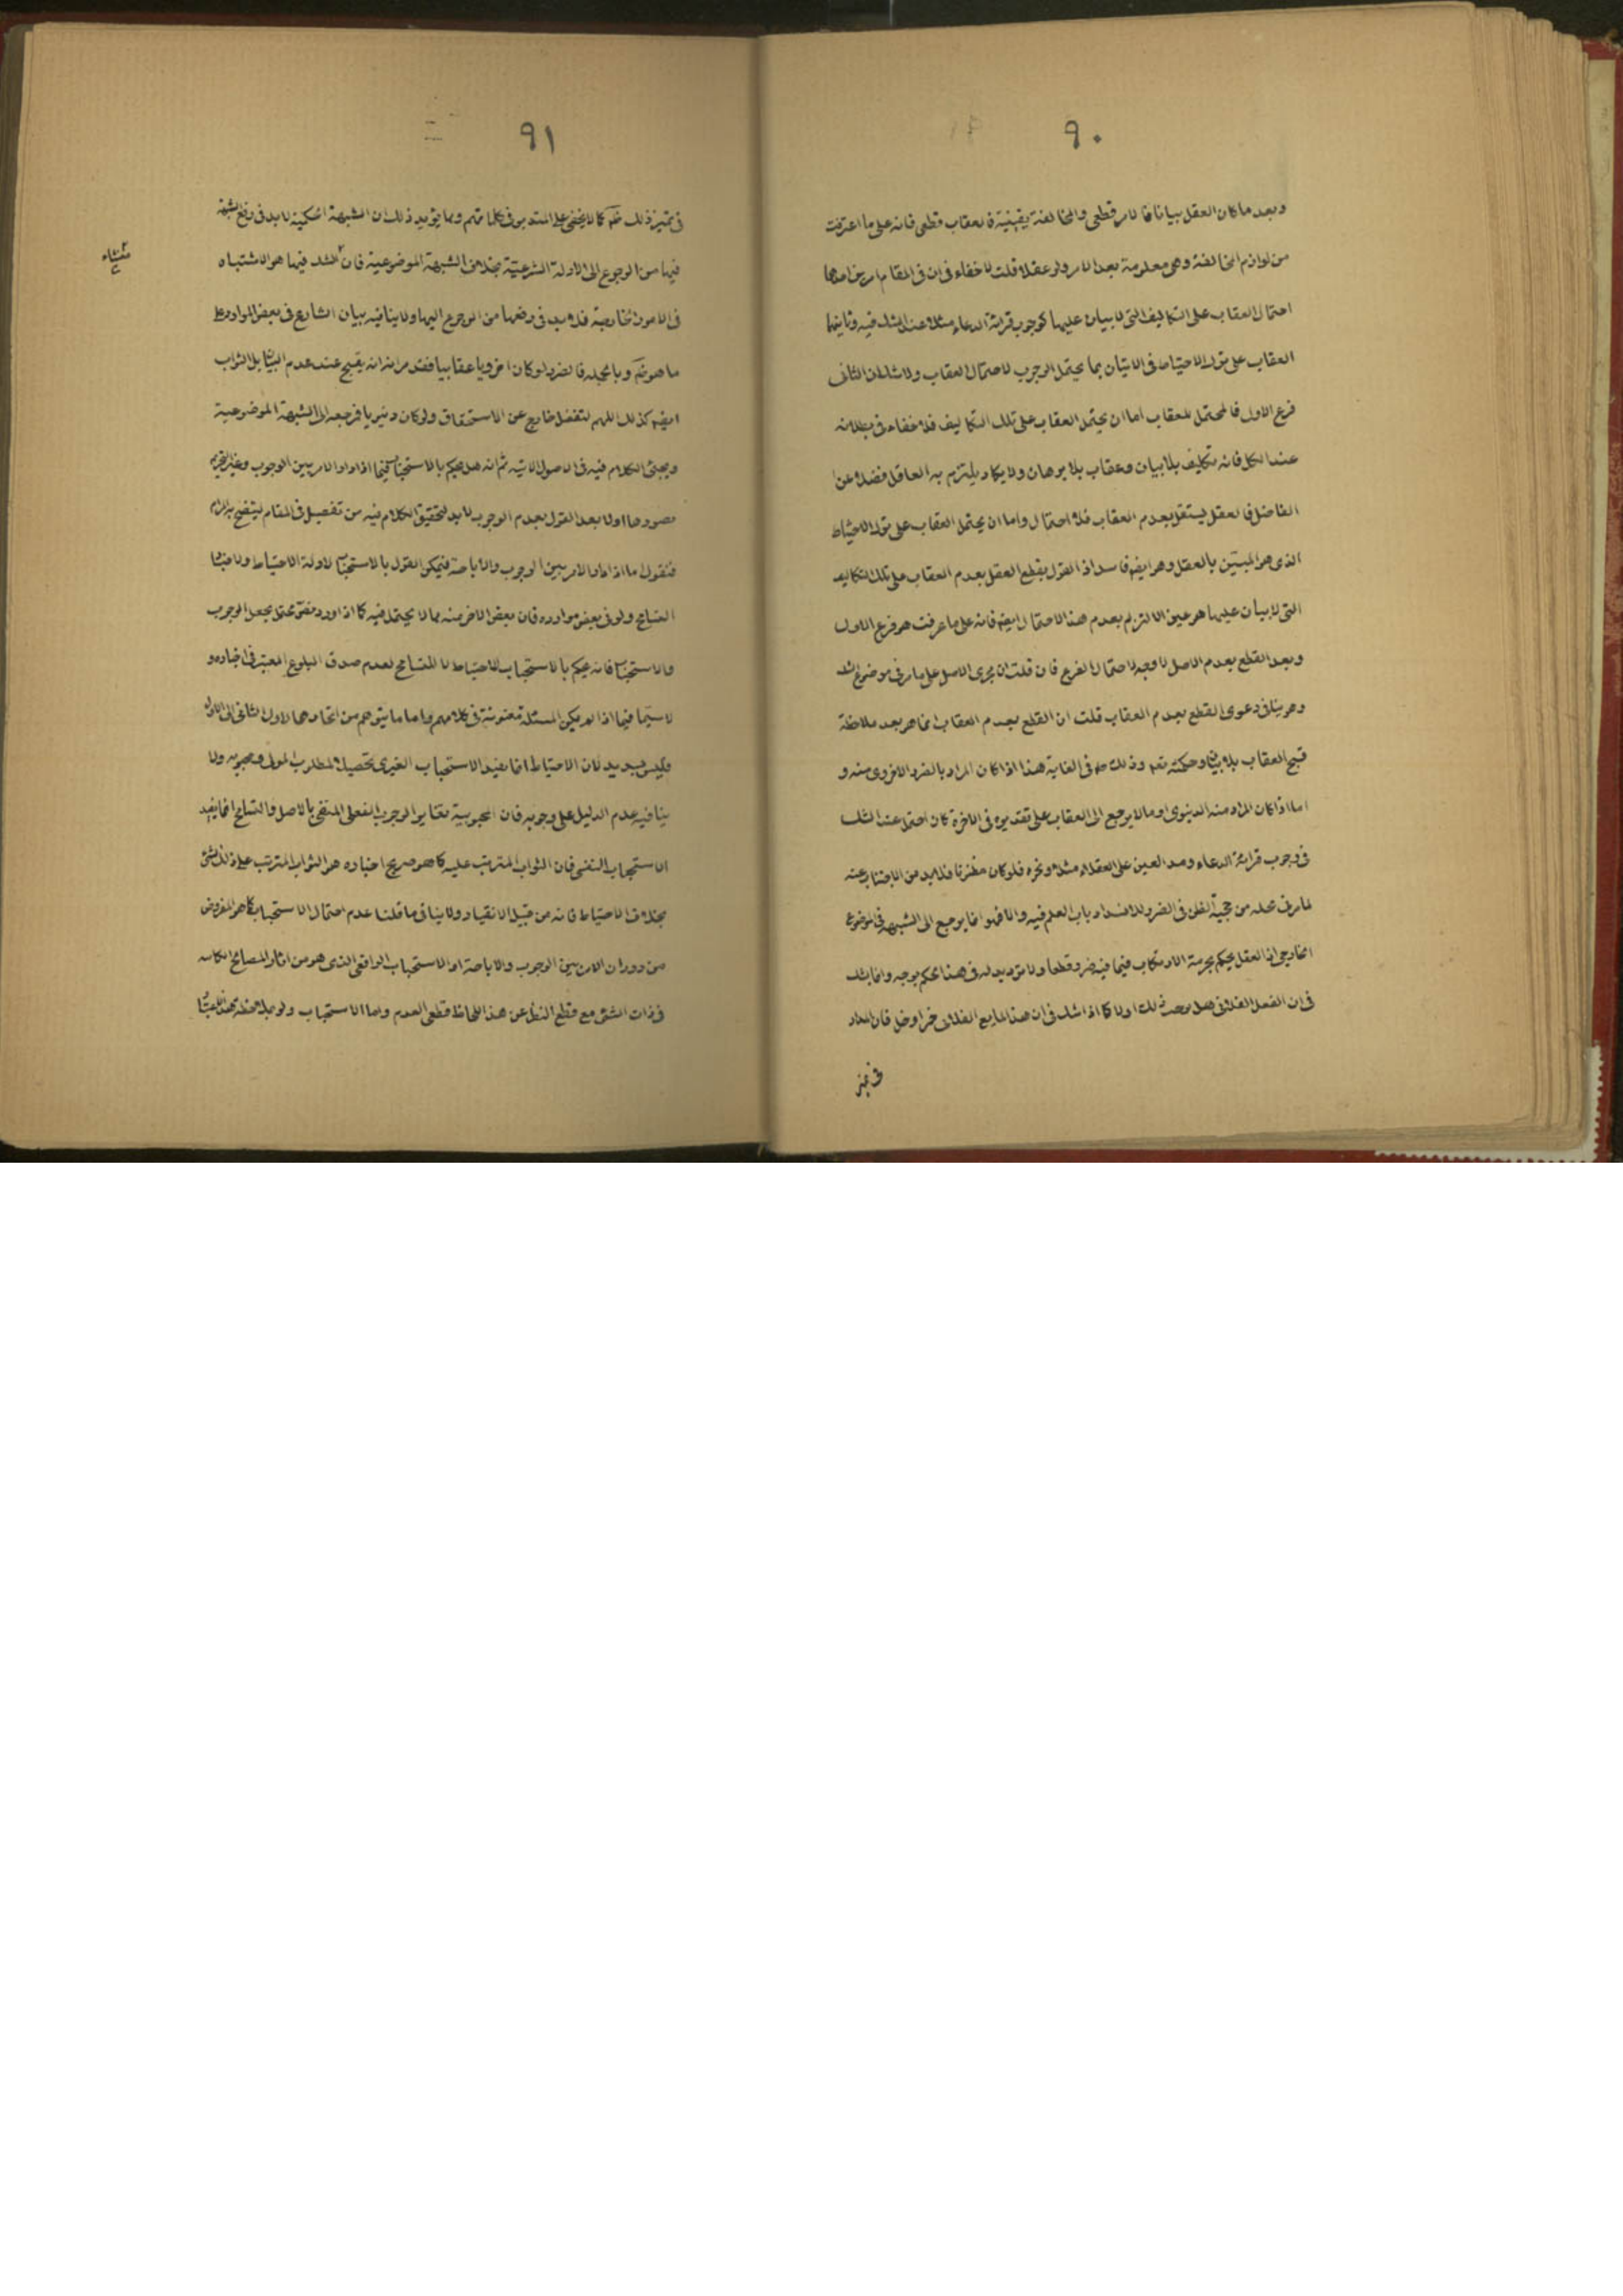 ٩٠
وبعد ما كان العقل بيانا فالامر قطعى والمخالفة يقينية فالعقاب قطعى فانه على ما اعترفت
من لوازم المخالفة وهى معلومة بعد الامر ولو عقلا قلت لا خفاء فى ان فى المقام امرين احدهما
احتمال العقاب على التكاليف التى لا بيان عليها كوجوب قرائة الدعاء مثلا عند الشك فيه وثانيهما
العقاب على ترك الاحتياط فى الاتيان بما يحتمل الوجوب لاحتمال العقاب ولا شك ان الثانى
فرع الاول فالمحتمل للعقاب اما ان يحتمل العقاب على تلك التكاليف فلا خفاء فى بطلانه
عند الكل فانه تكليف بلا بيان وعقاب بلا برهان ولا يكاد يلتزم به العاقل فضلا عن
الفاضل فالعقل يستقل بعدم العقاب فلا احتمال واما ان يحتمل العقاب على ترك الاحتياط
الذى هو المبين بالعقل وهو ايضا فاسد اذ القول بقطع العقل بعدم العقاب على تلك التكاليف
التى لا بيان عليها هو عين الالتزام بعدم هذا الاحتمال ايضا فانه على ما عرفت هو فرع الاول
وبعد القطع بعدم الاصل لا وجه لاحتمال الفرع فان قلت ان مجرى الاصل على ما مر فى موضوع الشك
وهو ينافى دعوى القطع بعدم العقاب قلت ان القطع بعدم العقاب انما هو بعد ملاحظة
قبح العقاب بلا بيان وحكمته تعم وذلك ظ فى الغاية هذا اذا كان المراد بالضرر الاخروى منه و
اما اذا كان المراد منه الدنيوى او ما لا يرجع الى العقاب على تقديره فى الاخرة كان احتمل عند الشك
فى وجوب قرائة الدعاء ومد العين على العقلاء مثلا ونحوه فلو كان مظنونا فلا بد من الاجتناب عنه
لما مر فى محله من حجية الظن فى الضرر للانسداد باب العلم فيه والا فهو انما يرجع الى الشبهة فى الموضوع
الخارجى اذ العقل يحكم بحرمة الارتكاب فيما فيه ضرر قطعا ولا ترديد له فى هذا الحكم بوجه وانما يشك
فى ان الفعل الفلانى هل مصداق ذلك اولا كما اذا شك فى ان هذا المايع الفلانى خمر او خل فان المدار
فى تميز
٩١
فى تميز ذلك ظ كما لا يخفى على المتدبر فى كلماتهم ومما يؤيد ذلك ان الشبهة الحكمية لا بد فى رفع الشبهة
فيها من الرجوع الى الادلة الشرعية بخلاف الشبهة الموضوعية فان الشك فيها هو الاشتباه
منشاء
فى الامور الخارجية فلا بد فى رفعها من الرجوع اليها ولا ينافيه بيان الشارع فى بعض الموارد على
ما هو ثم وبالجملة فالضرر لو كان اخرويا عقابيا فقد مر انه يقبح عند عدم البيان بل الثواب
ايضا كذلك اللهم لتفضل خارج عن الاستحقاق ولو كان دنيويا فمرجعه الى الشبهة الموضوعية
ويجئ الكلام فيه فى الاصول الاتيه ثم انه هل يحكم بالاستحباب فيما اذا دار الامر بين الوجوب وغير التحريم
بعد القول بعدم الوجوب لا بد لتحقيق الكلام فيه من تفصيل فى المقام ليتضح به المرام
فنقول اما اذا دار الامر بين الوجوب والاباحة فيمكن القول بالاستحباب لادلة الاحتياط ولاخبار
التسامح ولو فى بعض موارده فان بعض الاخر منه مما لا يحتمل فيه كما اذا ورد نص يحتمل بجعل الوجوب
والاستحباب فانه يحكم بالاستحباب للاحتياط لا للتسامح لعدم صدق البلوغ المعتبر فى اخباره و
لا سيما فيما اذا لم يكن المسئلة معنونة فى كلامهم واما ما يتوهم من اتحادهما لاول الثانى الى الاول
فليس بسديد لان الاحتياط انما يفيد الاستحباب الغيرى لتحصيل مطلوب المولى ومحبوبه ولا
ينافيه عدم الدليل على وجوبه فان المحبوبية تغاير الوجوب الفعلى المنفى بالاصل والتسامح انما يفيد
الاستحباب النفسى فان الثواب المترتب عليه كما هو صريح اخباره هو الثواب المترتب على ذلك الشئ
بخلاف الاحتياط فانه من قبيل الانقياد ولا ينافى ما قلنا عدم احتمال الاستحباب كما هو المفروض
من دوران الامر بين الوجوب والاباحة اذ الاستحباب الواقعى الذى هو من اثار المصالح الكامنة
فى ذات الشئ مع قطع النظر عن هذا اللحاظ قطعى العدم واما الاستحباب ولو بملاحظة